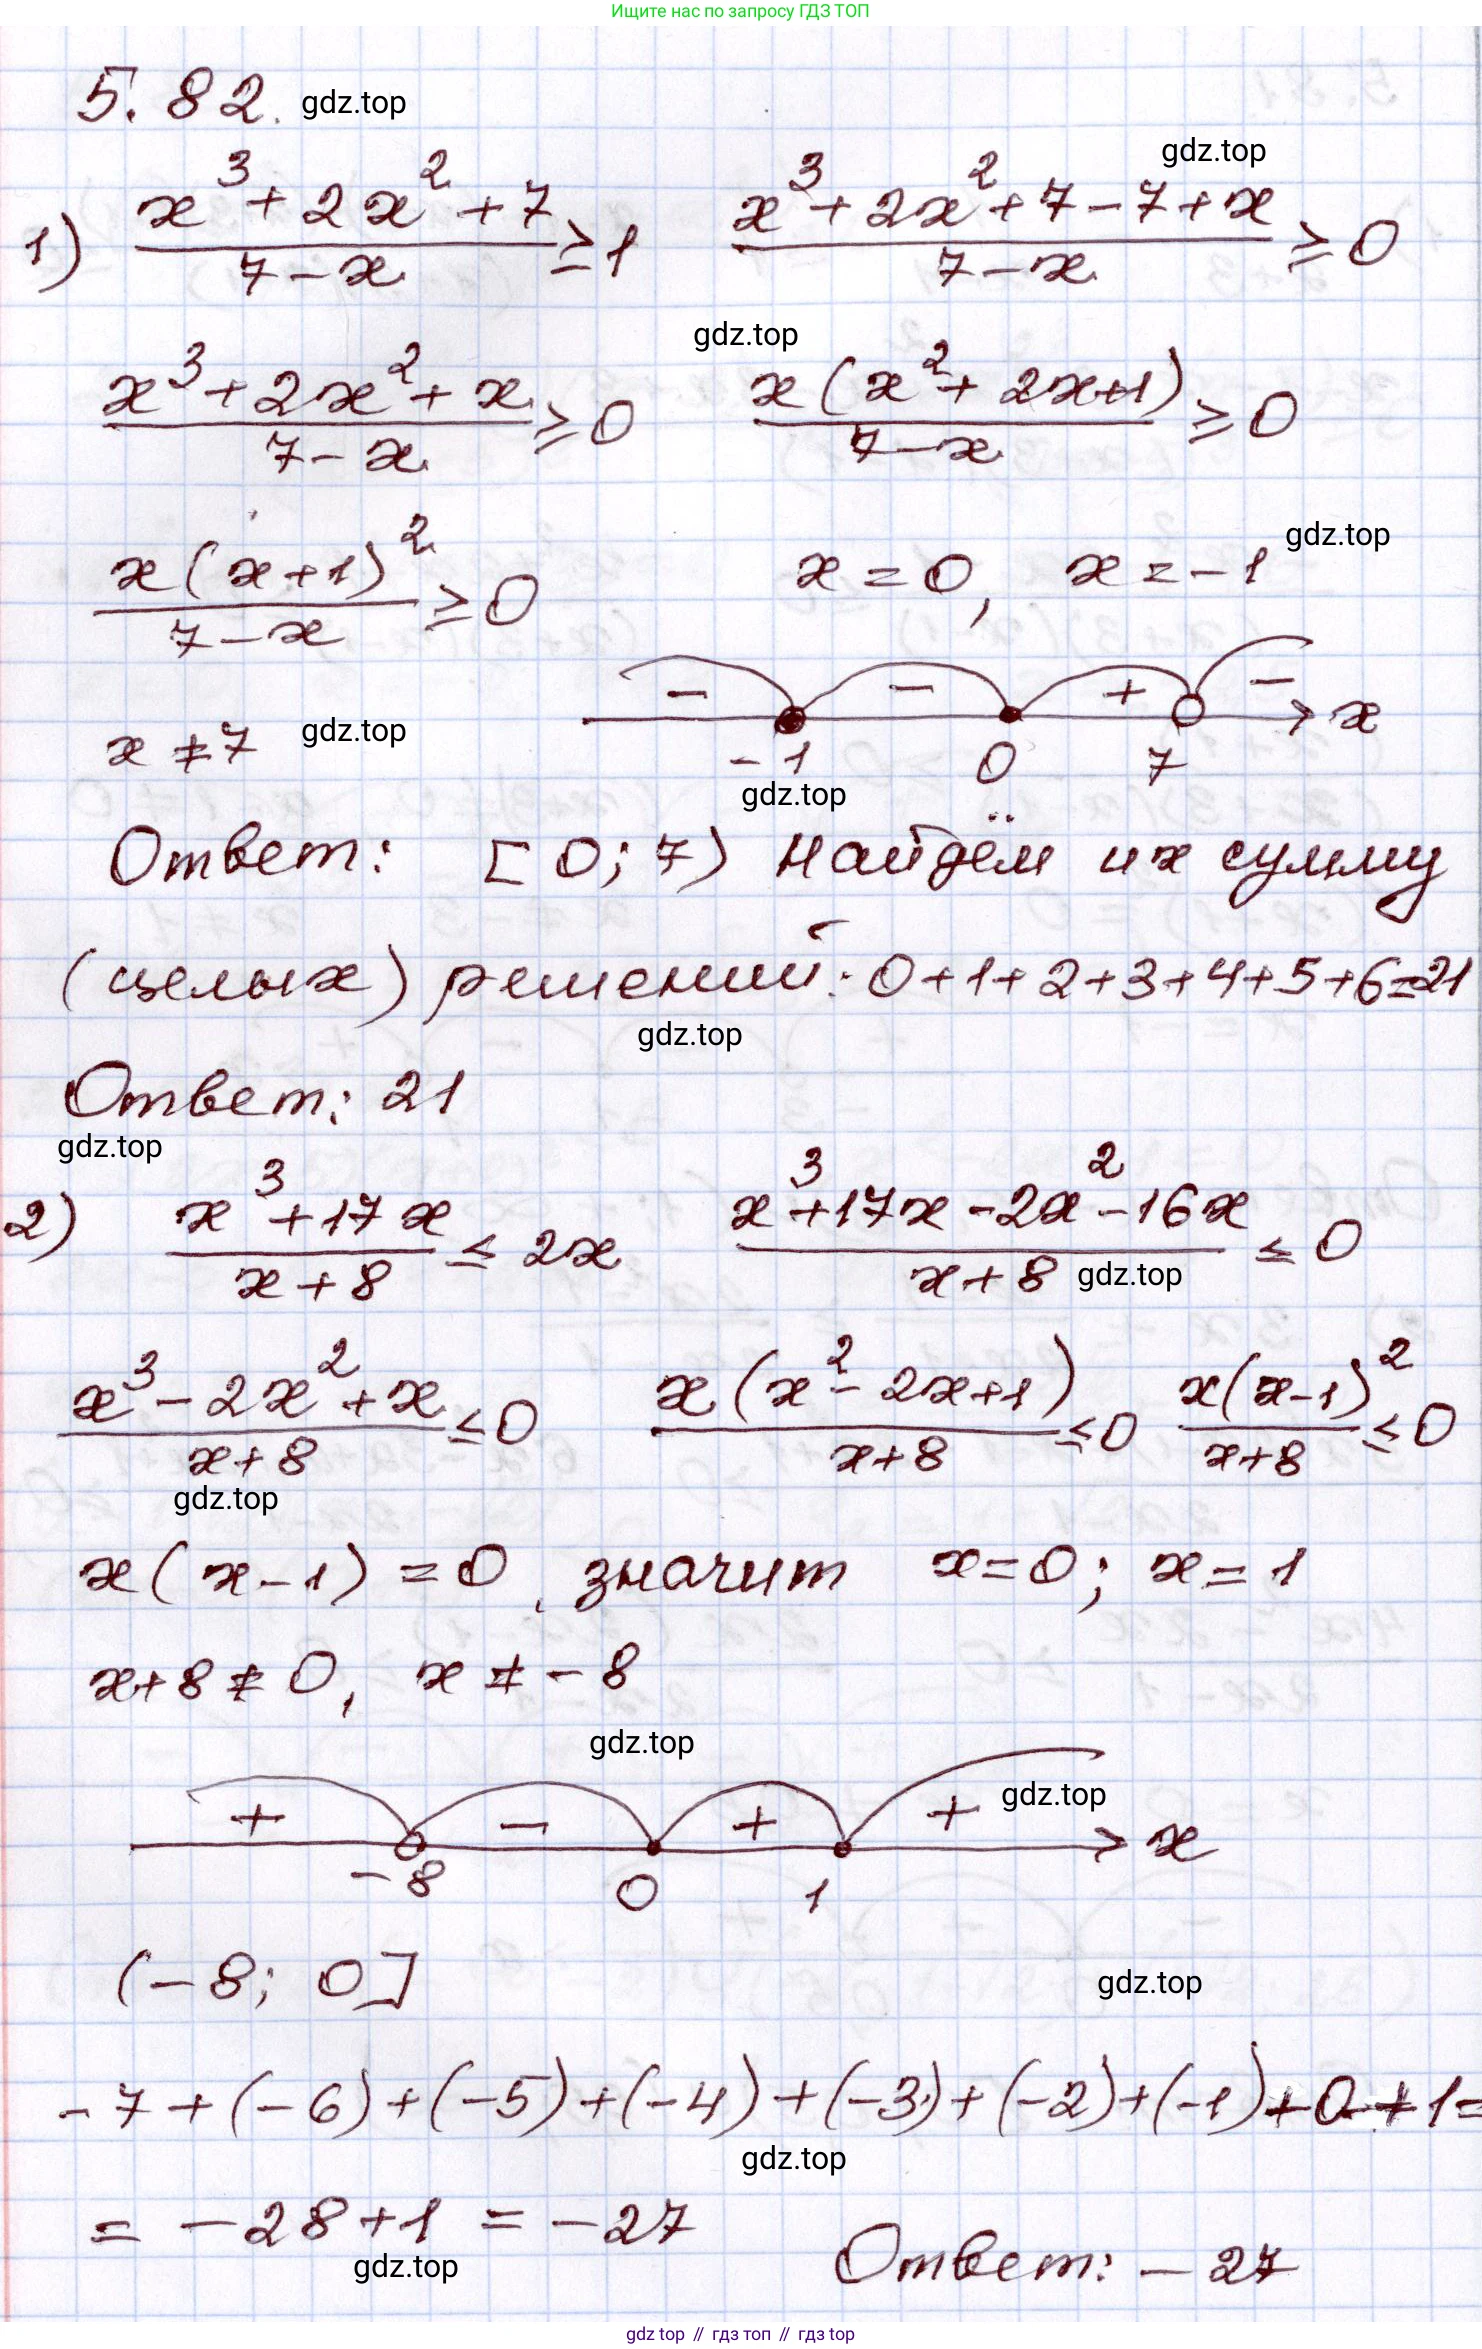 Ищите нас по запросу ГДЗ ТОП
5.82. gdz.top
gdz.top
1) (x³+2x²+7)/(7-x) ≥ 1   (x³+2x²+7-7+x)/(7-x) ≥ 0
gdz.top
(x³+2x²+x)/(7-x) ≥ 0   x(x²+2x+1)/(7-x) ≥ 0
gdz.top
x(x+1)²/(7-x) ≥ 0   x=0, x=-1
- - + -
x≠7 gdz.top   x
-1 0 7
gdz.top
Ответ: [0;7) Найдём их сумму
(целых) решений: 0+1+2+3+4+5+6=21
gdz.top
Ответ: 21
gdz.top
2) (x³+17x)/(x+8) ≤ 2x   (x³+17x-2x²-16x)/(x+8) ≤ 0
gdz.top
(x³-2x²+x)/(x+8) ≤ 0   x(x²-2x+1)/(x+8) ≤ 0   x(x-1)²/(x+8) ≤ 0
gdz.top
x(x-1)=0, значит x=0; x=1
x+8≠0, x≠-8
gdz.top
gdz.top
+ - + +
x
-8 0 1
(-8; 0]
gdz.top
-7+(-6)+(-5)+(-4)+(-3)+(-2)+(-1)+0+1=
gdz.top
= -28+1 = -27
gdz.top
Ответ: -27
gdz.top // гдз топ // гдз top